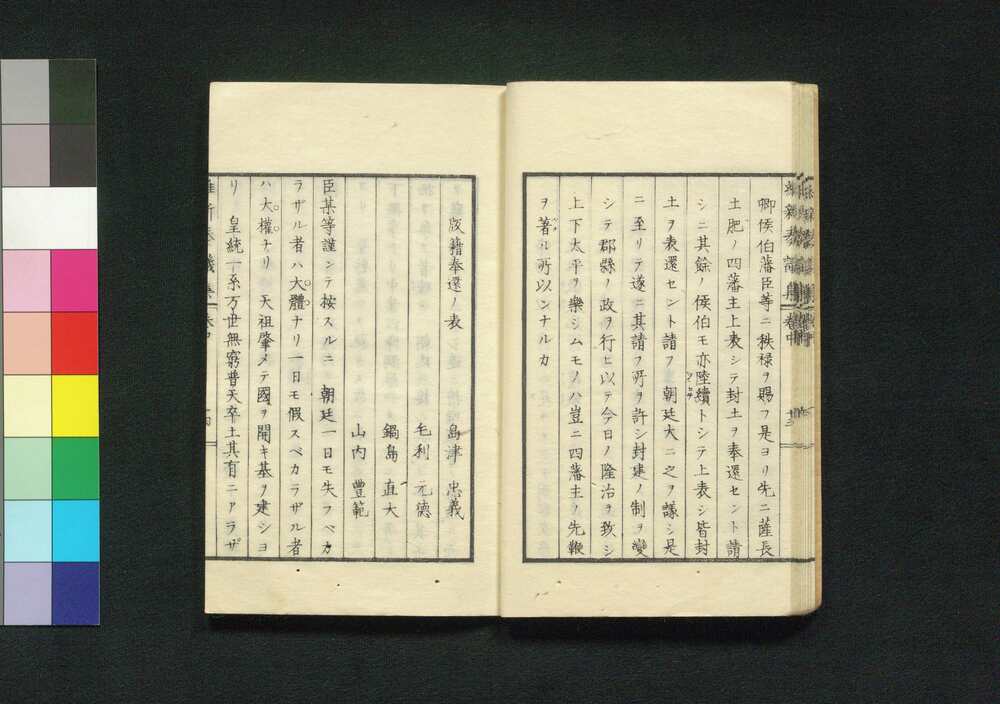 卿侯伯藩臣等ニ秩禄ヲ賜フ是ヨリ先ニ薩長
土肥ノ四藩主上表シテ封土ヲ奉還セント請
シニ其餘ノ侯伯モ亦陸續トシテ上表シ皆封
土ヲ表還セント請フ 朝廷大ニ之ヲ議シ是
ニ至リテ遂ニ其請フ所ヲ許シ封建ノ制ヲ變
シテ郡縣ノ政ヲ行ヒ以テ今日ノ隆治ヲ致シ
上下太平ヲ樂シムモノハ豈ニ四藩主ノ先鞭
ヲ著ル所以ンナルカ
版籍奉還ノ表
島津 忠義
毛利 元德
鍋島 直大
山内 豐範
臣某等謹ンテ按スルニ 朝廷一日モ失フベカ
ラザル者ハ大體ナリ一日モ假スベカラザル者
ハ大權ナリ 天祖肇メテ國ヲ開キ基ヲ建シヨ
リ 皇統一系万世無窮普天卒土其有ニアラザ